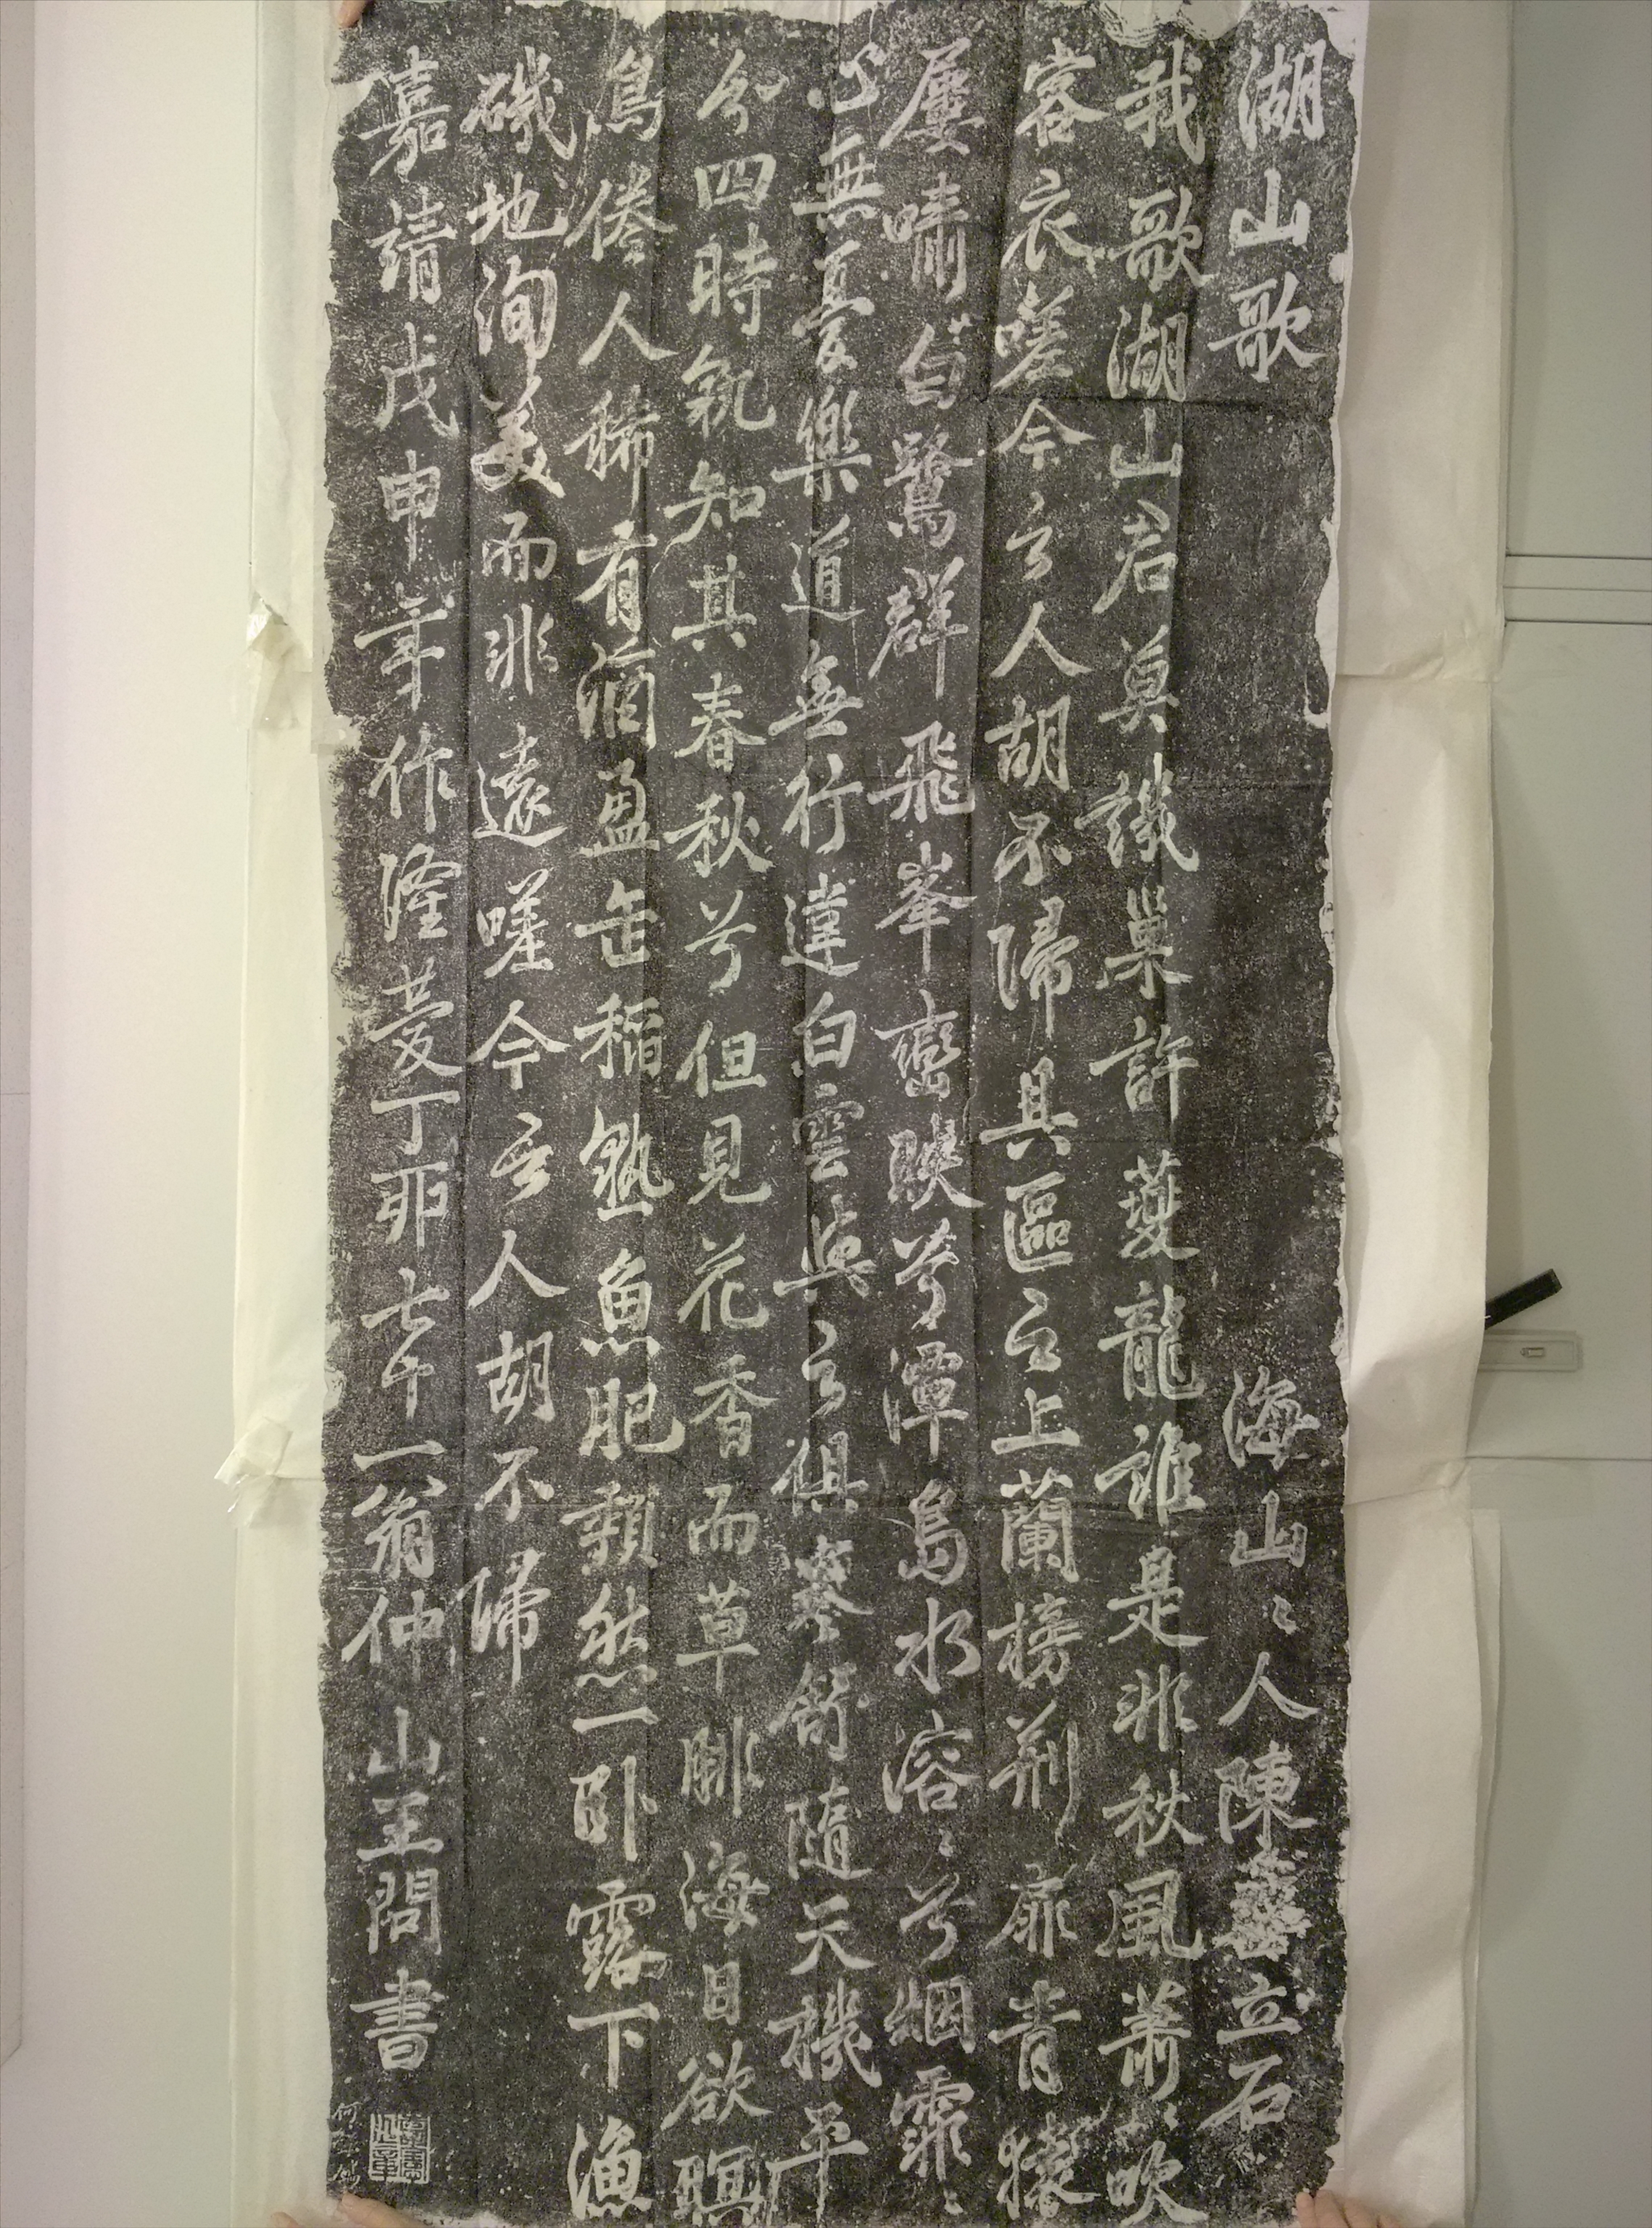 湖山歌 海山〻人陳立石
我歌湖山君莫譏巢許夔龍誰是非秋風蕭〻吹
客衣嗟今之人胡不歸具區之上蘭榜荊扉青猿
屢嘯白鷺群飛峯巒映兮潭島水溶〻兮烟霏〻
心無憂樂道無行違白雲與之俱卷舒隨天機平
分四時孰知其春秋兮但見花香而草腓海日欲瞑
鳥倦人稀有酒盈缶稻熟魚肥頹然一卧露下漁
磯地洵美而非遠嗟今之人胡不歸
嘉靖戊申年作隆慶丁卯七十一翁仲山王問書